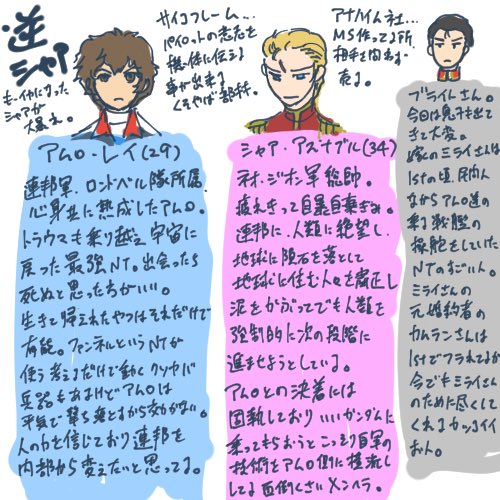 逆シャア
もーイヤになった
シャアが
大暴れ。
サイコフレーム…
パイロットの意志を
機体に伝える
事が出来る
くそやば部材。
アナハイム社…
MS作ってる所。
相手を問わず
売る。
アムロ・レイ(29)
連邦軍ロンドベル隊所属。
心身共に熟成したアムロ。
トラウマも乗り越え宇宙に
戻った最強NT。出会ったら
死ぬと思った方がいい。
生きて帰えれたやつはそれだけで
有能。ファンネルというNTが
使う考えるだけで動くクソヤバ
兵器もあるけどアムロは
平気で撃ち落とすから効かない。
人の力を信じており連邦を
内部から変えたいと思ってる。
シャア・アズナブル(34)
ネオ・ジオン軍総帥。
疲れきって自暴自棄ぎみ。
連邦に、人類に絶望し、
地球に隕石を落として
地球に住む人々を粛正し
泥をかぶってでも人類を
強制的に次の段階に
進ませようとしている。
アムロとの決着には
固執しており いいガンダムに
乗ってもらおうとこっそり自軍の
技術をアムロ側に横流し
してる面倒くさいメンヘラ。
ブライトさん。
今回は息子も出て
きて大変。
嫁のミライさんは
1stの頃、民間人
ながらアムロ達の
乗る戦艦の
操舵をしていた
NTのすごい人。
ミライさんの
元婚約者の
カムランさんは
1stでフラれてるが
今でもミライさん
のために尽くして
くれるカッコイイ
お人。